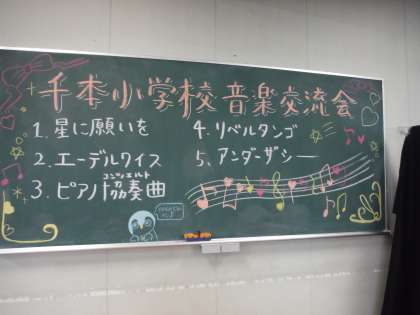 千本小学校 音楽交流会
1. 星に願いを
2. エーデルワイス
コンツェルト
3. ピアノ協奏曲
4. リベルタンゴ
5. アンダーザシー